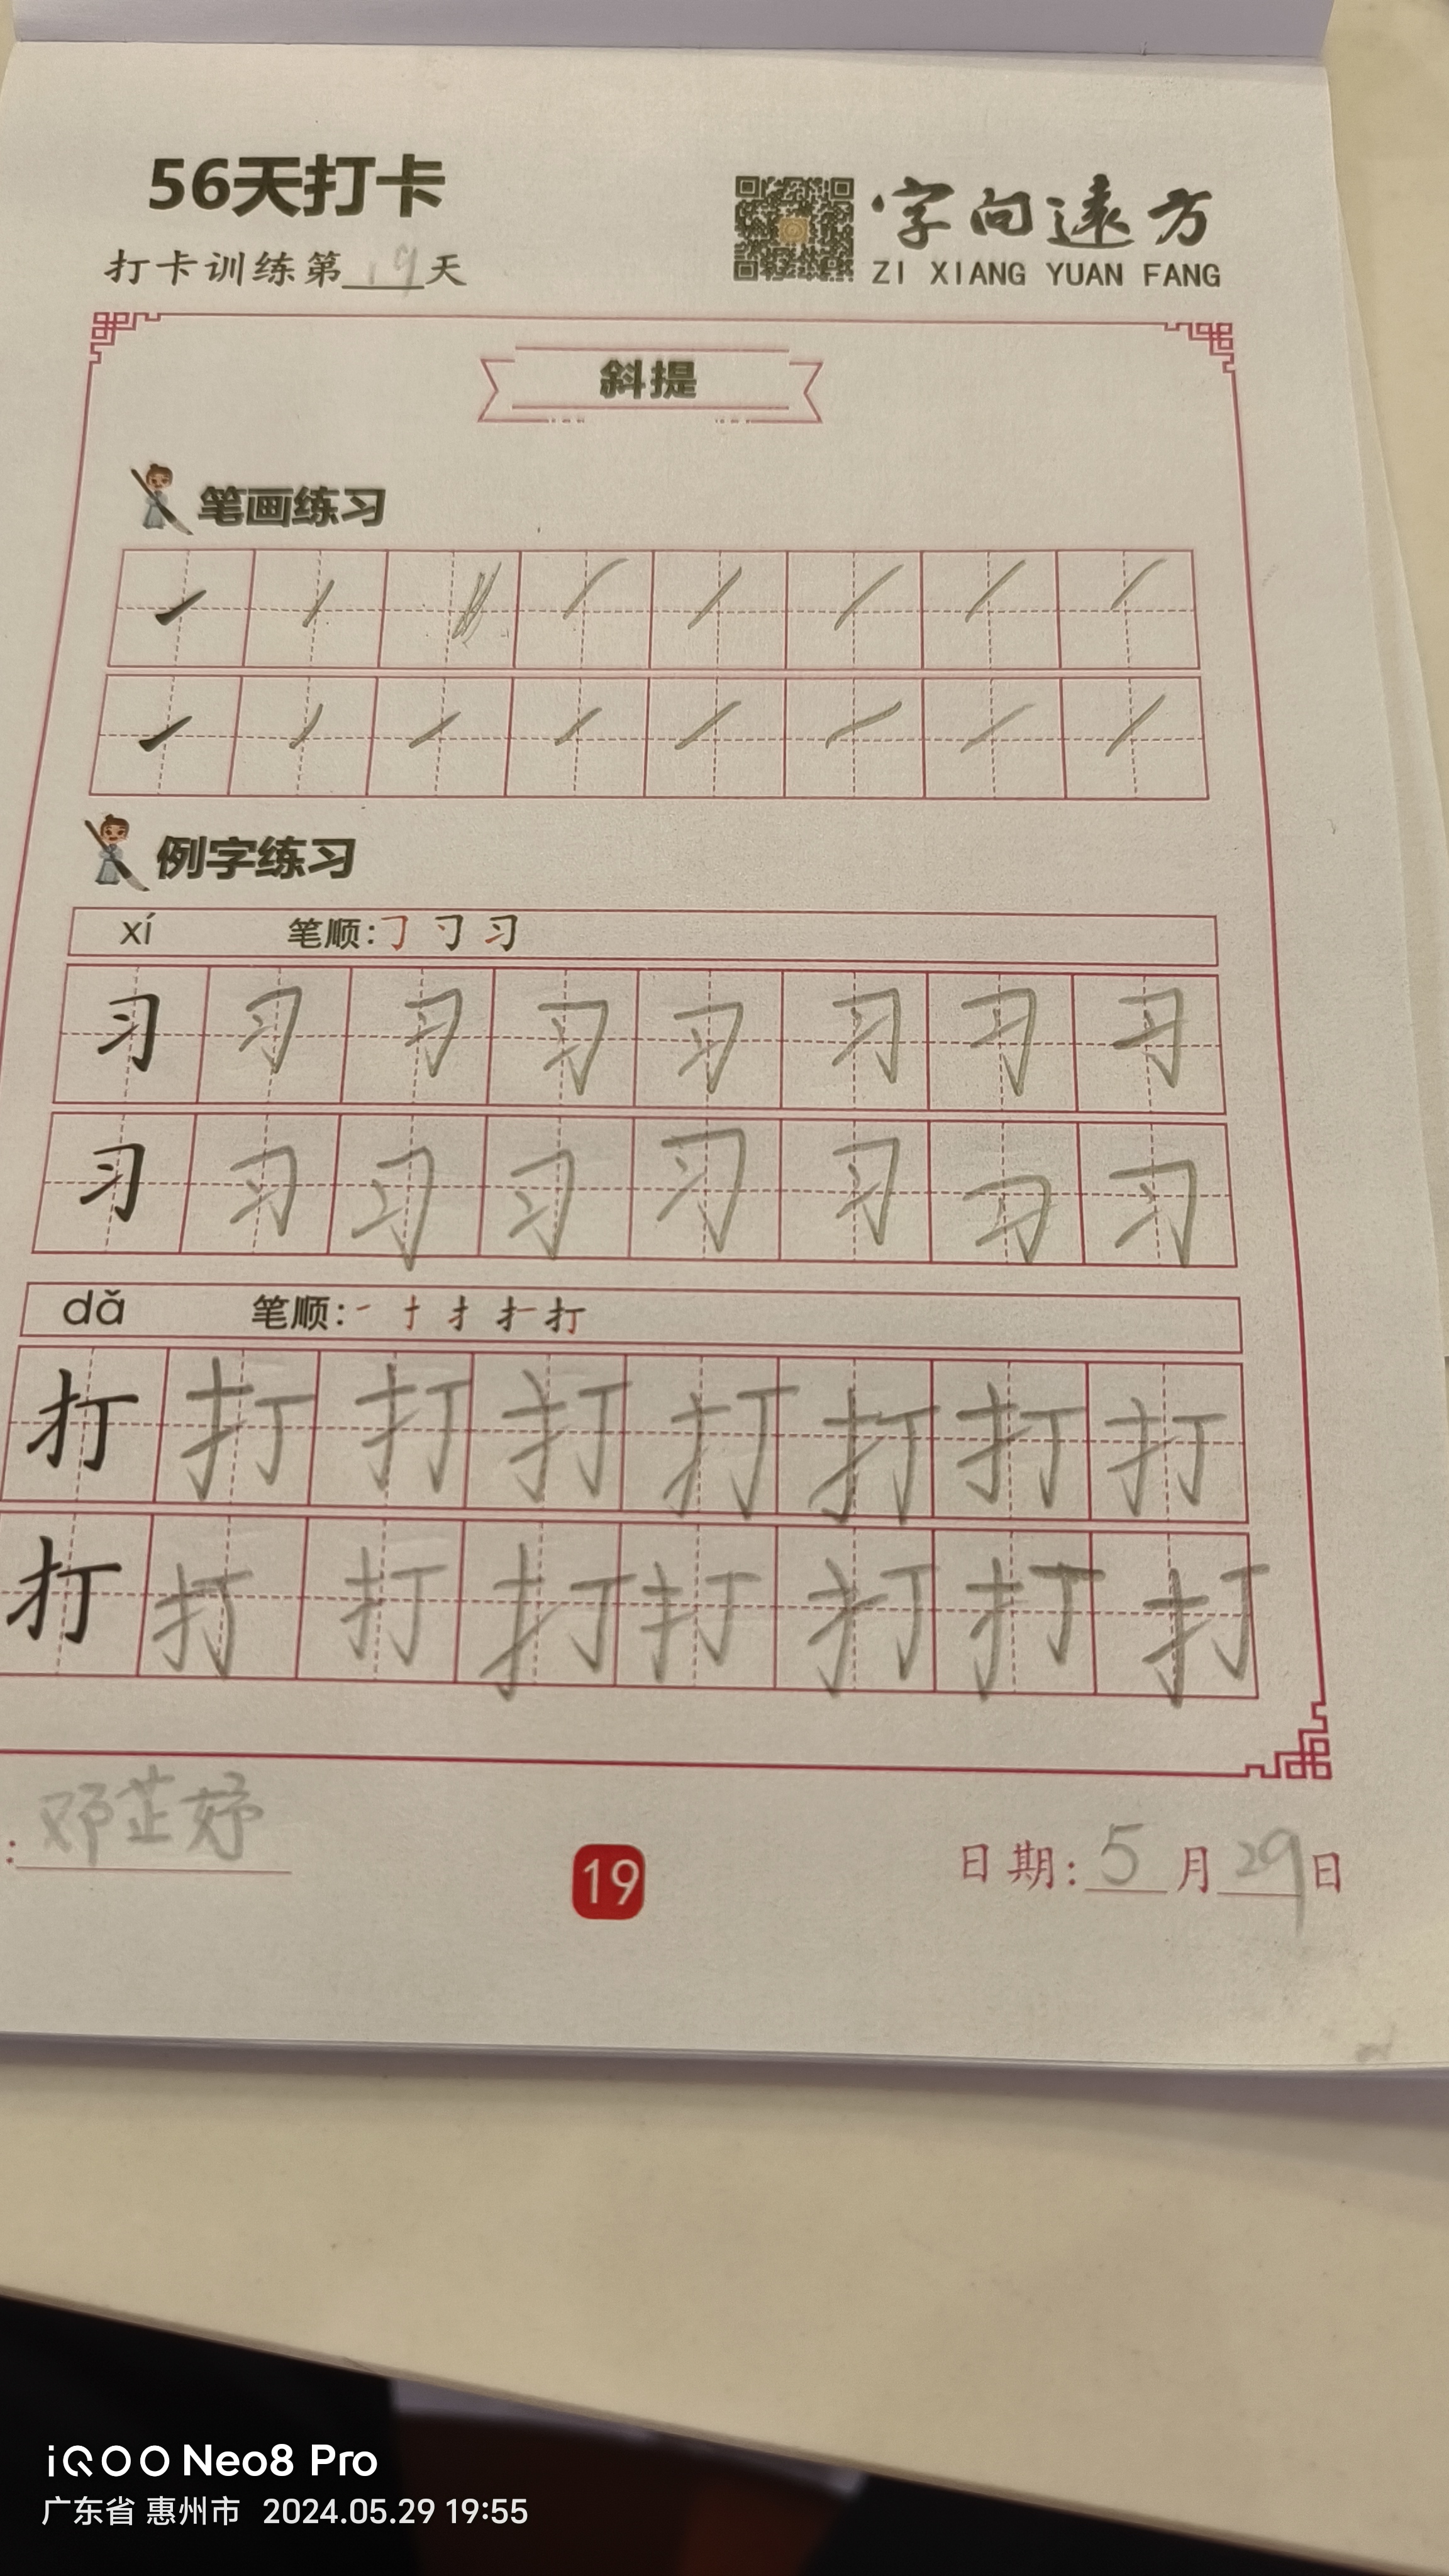 56天打卡
字向远方
打卡训练第19天
ZI XIANG YUAN FANG
斜提
笔画练习
例字练习
xí 笔顺:习
习 习 习 习 习 习 习 习
习 习 习 习 习 习 习 习
dǎ 笔顺:一 十 扌 扩 打
打 打 打 打 打 打 打 打
打 打 打 打 打 打 打 打
:邓芷妤
19
日期:5月29日
iQOO Neo8 Pro
广东省 惠州市 2024.05.29 19:55